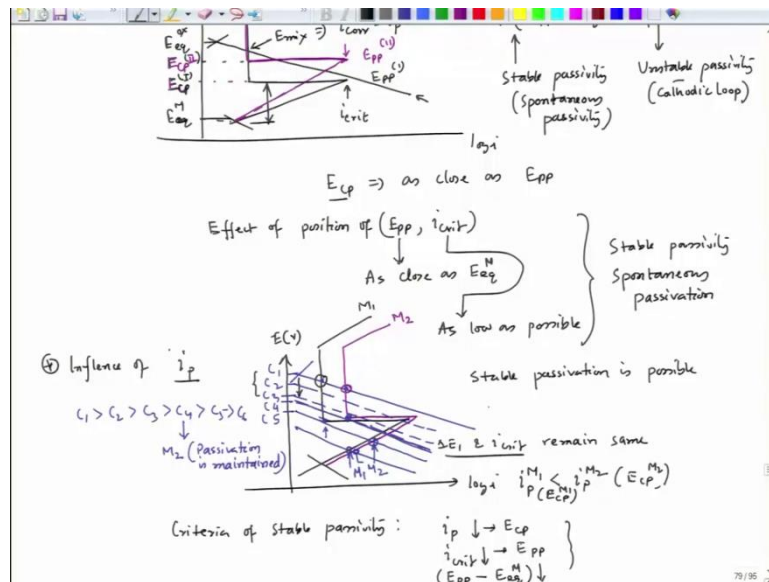 E_eq^ox
E_mix ⇒
i_corr
E_pp^(II)
E_cp^(II)
E_pp^(I)
E_cp^(I)
E_eq^M
i_crit
log i
Stable passivity
(Spontaneous
passivity)
Unstable passivity
(Cathodic loop)
E_cp ⇒ as close as E_pp
Effect of position of (E_pp, i_crit)
As close as E_eq^M
As low as possible
Stable passivity
Spontaneous
passivation
④ Inflence of i_p
E(V)
M1
M2
Stable passivation is possible
C1
C2
C3
C4
C5
C1 > C2 > C3 > C4 > C5 > C6
M2 (Passivation
is maintained)
M1 M2
ΔE1 & i_crit remain same
log i
i_p^M1 < i_p^M2
(E_cp^M1) (E_cp^M2)
Criteria of stable passivity :
i_p ↓ → E_cp
i_crit ↓ → E_pp
(E_pp - E_eq^M) ↓
79/95